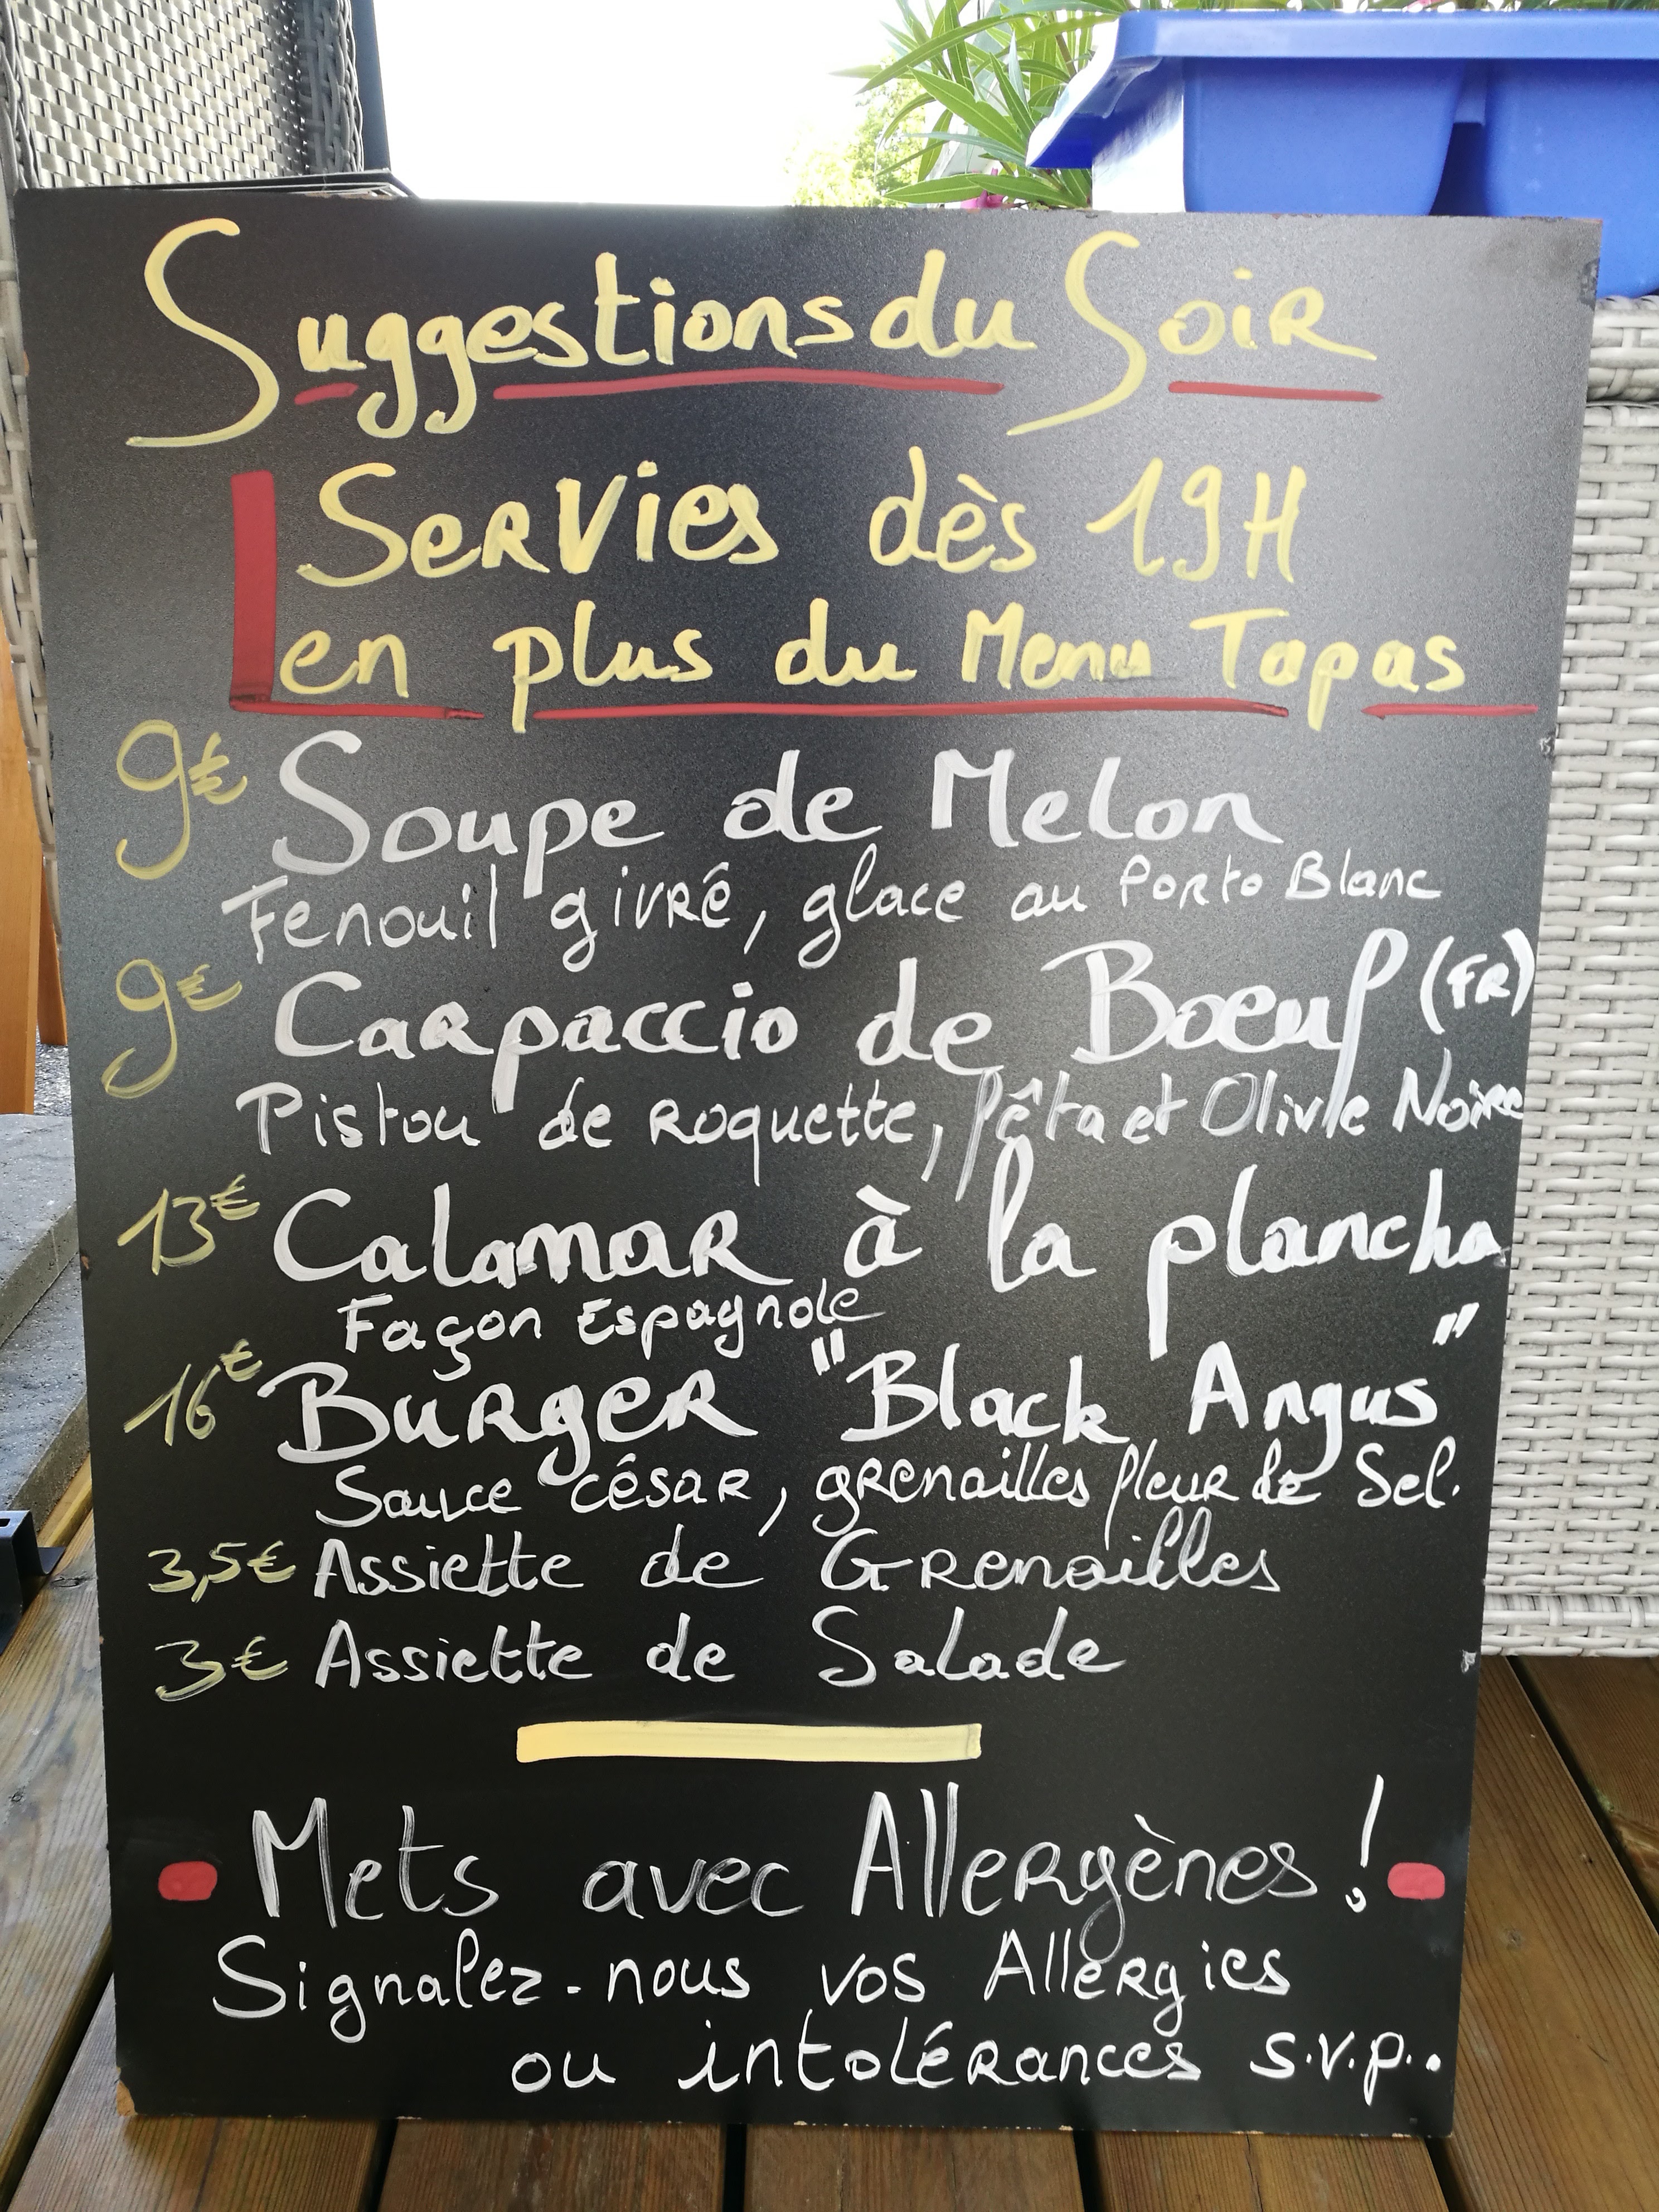 Suggestions du Soir
Servies dès 19H
en plus du Menu Tapas
9€ Soupe de Melon
Fenouil givré, glace au Porto Blanc
9€ Carpaccio de Boeuf (FR)
Pistou de Roquette, fêta et Olivle Noire
13€ Calamar à la plancha
Façon Espagnole
16€ Burger "Black Angus"
Sauce césar, grenailles fleur de Sel.
3,5€ Assiette de Grenailles
3€ Assiette de Salade
Mets avec Allergènes !
Signalez-nous vos Allergies
ou intolérances s.v.p..